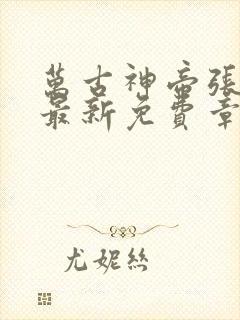 萬古神帝張
最新免費章
尤妮絲